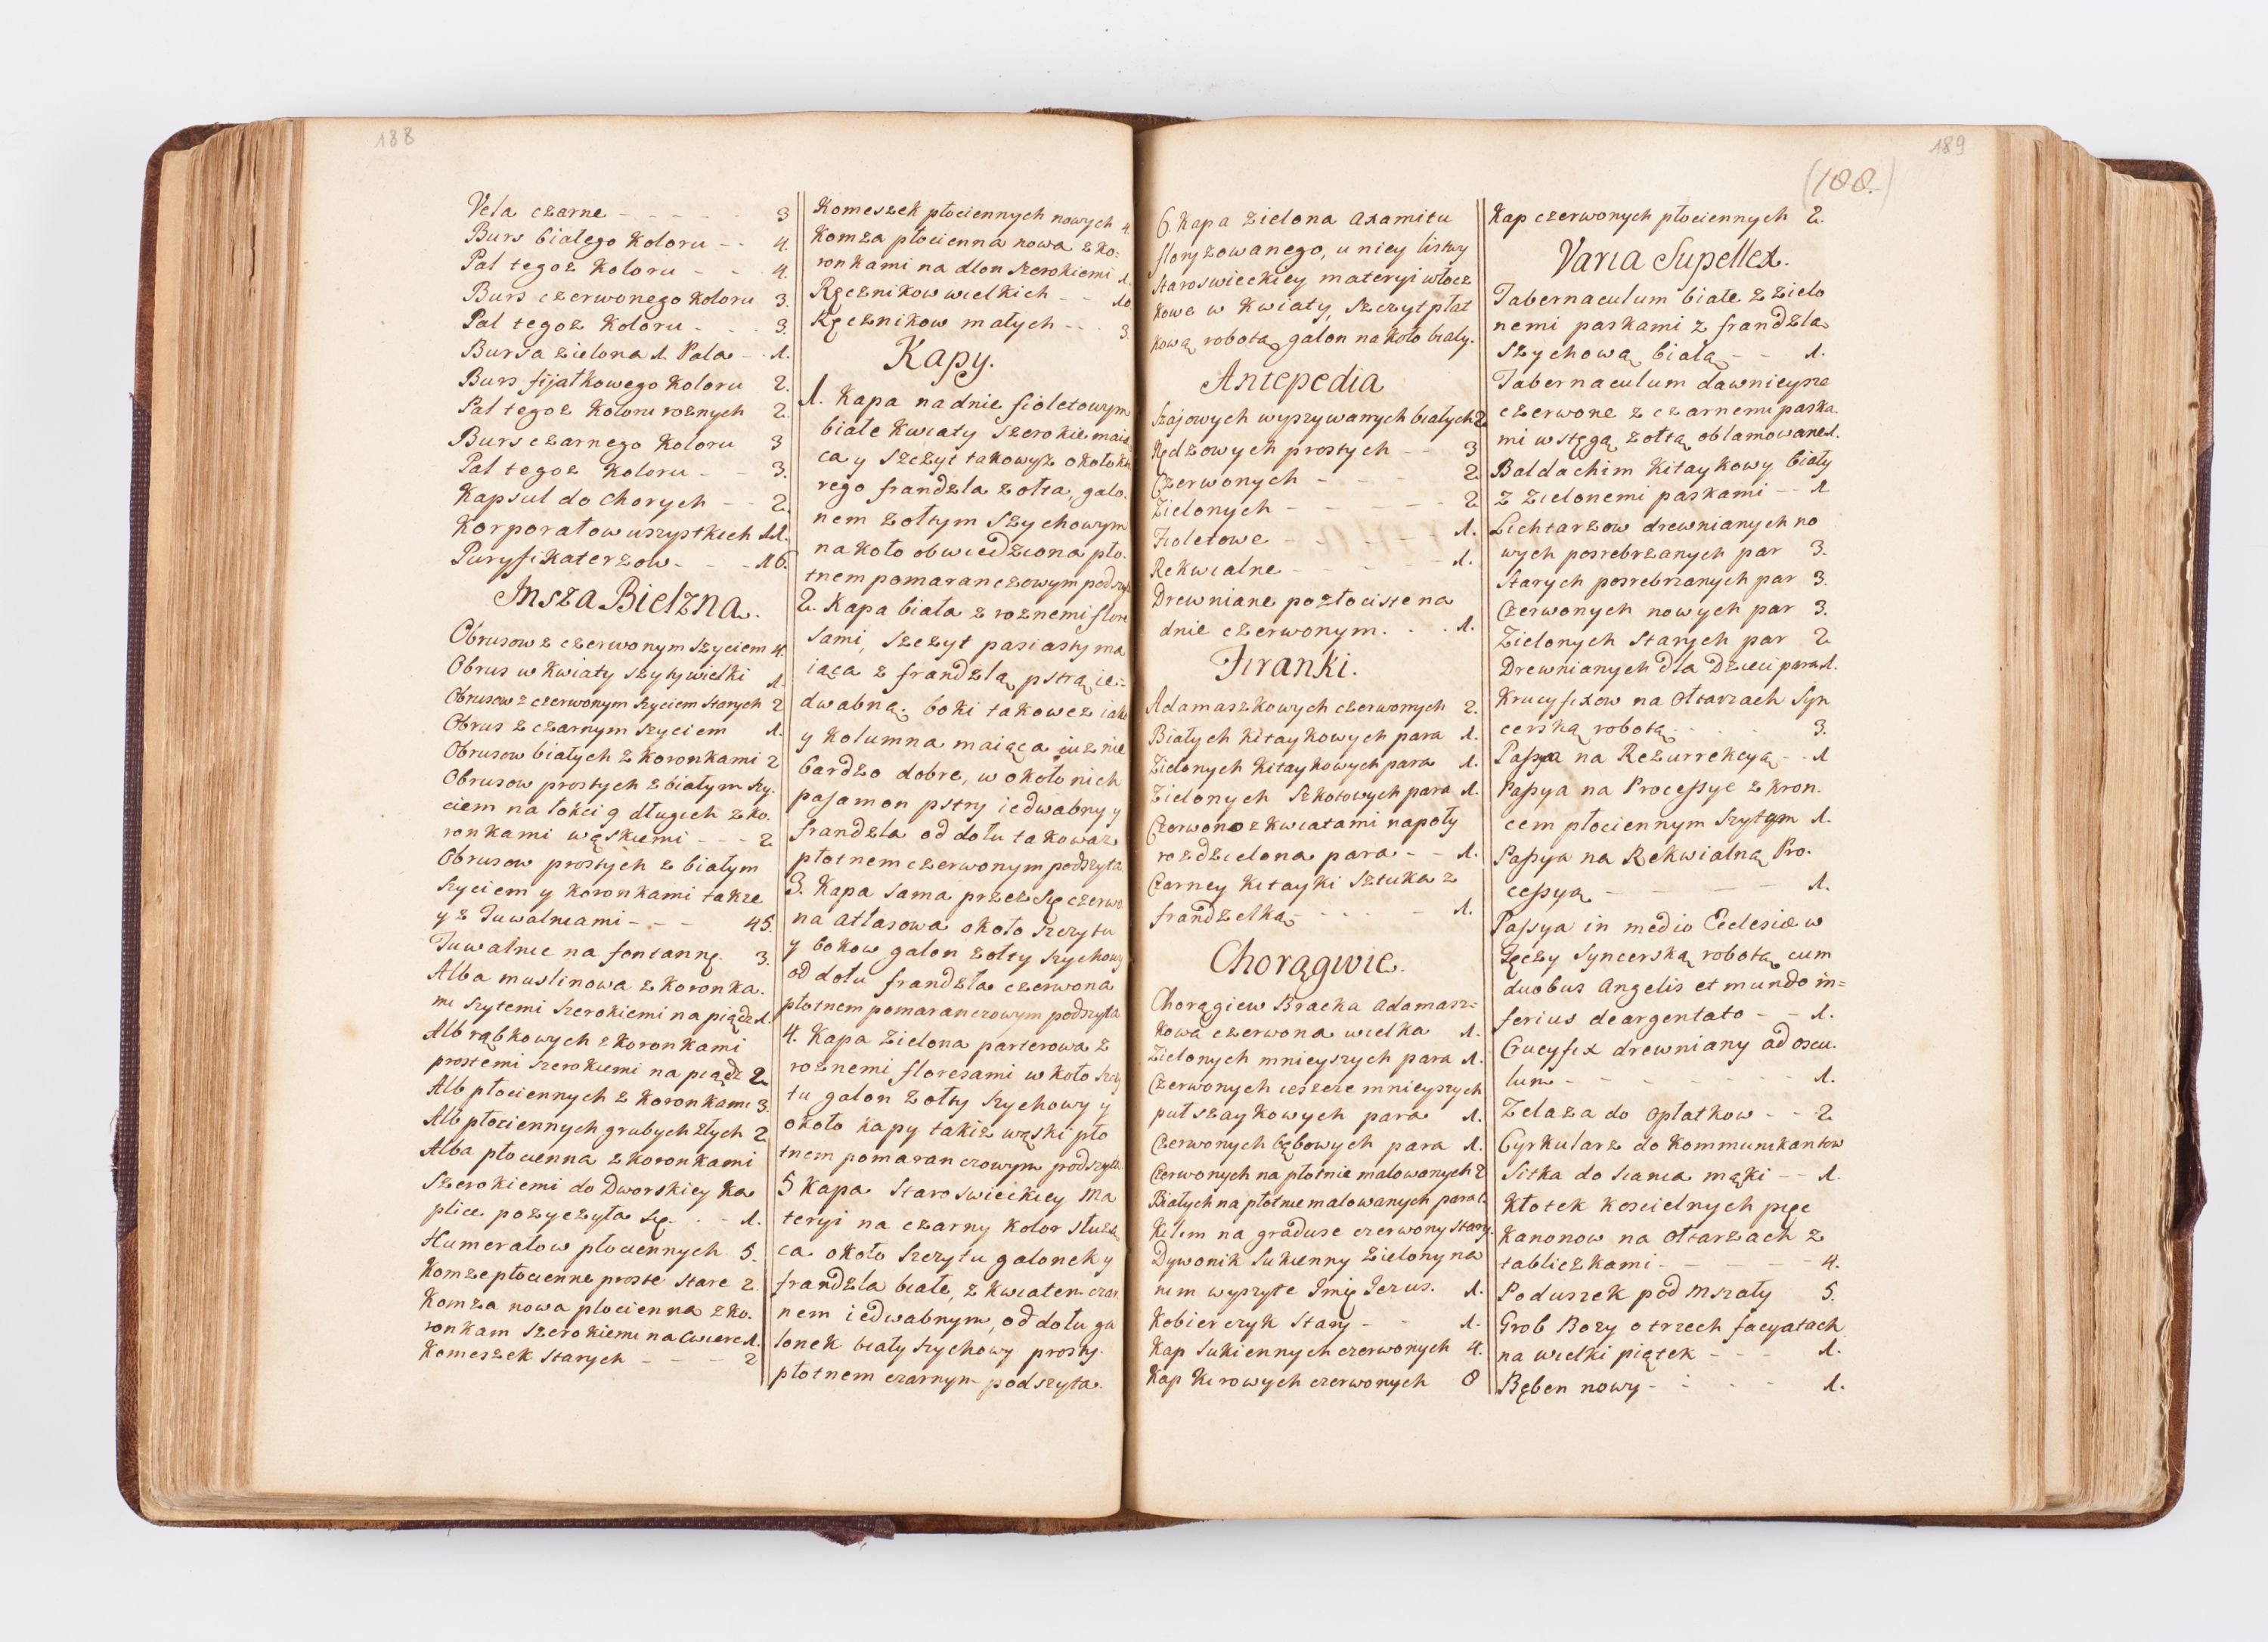 188
Vela czarne - - - - - 3
Burs białego Koloru - - 4.
Pal tegoż Koloru - - 4.
Burs czerwonego Koloru 3.
Pal tegoż Koloru - - . 3.
Bursa zielona 1. Pala - . 1.
Burs fijałkowego Koloru 2.
Pal tegoż Koloru rożnych 2.
Burs czarnego Koloru 3
Pal tegoż Koloru - - 3.
Kapsul do Chorych - - 2.
Korporałow wszystkich 11.
Puryfikaterzow - . - 16.
Insza Bielzna.
Obrusow z czerwonym szyciem 4.
Obrus w Kwiaty szyty wielki 1.
Obrusow z czerwonym szyciem starych 2
Obrus z czarnym szyciem 1.
Obrusow białych z Koronkami 2
Obrusow prostych z białym szy-
ciem na łokci 9 długich z ko.
ronkami wąskiemi - - - 2
Obrusow prostych z białym
szyciem y Koronkami takze
y z Tuwalniami - - - 45.
Tuwalnie na fontannę. 3.
Alba muslinowa z Koronka.
mi szytemi szerokiemi na piądz 1.
Alb rąbkowych z Koronkami
prostemi szerokiemi na piądz 2
Alb płociennych z Koronkami 3.
Alb płociennych grubych złych 2
Alba płocienna z Koronkami
szerokiemi do Dworskiey Ka
plice pozyczyła się. . - 1.
Humerałow płociennych 5.
Komze płocienne proste stare 2.
Komza nowa płocienna z ko.
ronkam szerokiemi na Cwierc 1.
Komeszek starych - - - 2
Komeszek płociennych nowych 4.
Komza płocienna nowa z ko:
ronkami na dlon szerokiemi 1.
Ręcznikow wielkich - - 10.
Ręcznikow małych - - . 3
Kapy.
1. Kapa na dnie fioletowym
białe Kwiaty szerokie maią
ca y szczyt takowyż około kto
rego frandzla zołta, galo.
nem zołtym szychowym
na koło obwiedziona pło.
tnem pomaranczowym podszyt
2. Kapa biała z rożnemi flore
sami, szczyt pasiasty ma
iąca z frandzlą pstrą ie:
dwabną. boki takowez iak
y kolumna maiąca iuz nie
bardzo dobre, w około nich
pasamon pstry iedwabny y
frandzla od dołu takowaz
płotnem czerwonym podszyta.
3. Kapa sama przez się czerwo
na atłasowa około szczytu
y bokow galon zołty szychowy
od dołu frandzla czerwona
płotnem pomaranczowym podszyta
4. Kapa Zielona parterowa z
rożnemi floresami w koło szczy
tu galon zołty szychowy y
około kapy takiz wąski pło
tnem pomaranczowym podszyta
5 Kapa staroswieckiey ma
teryi na czarny kolor służą
ca około szczytu galonek y
frandzla białe, z kwiatem czar.
nem iedwabnym, od dołu ga
lonek biały szychowy prosty.
płotnem czarnym podszyta.
189
(188.)
6. Kapa zielona axamitu
floryzowanego, u niey listwy
staroswieckiey materyi włocz
kowe w Kwiaty, szczyt płat
kową robotą galon na koło biały.
Antepedia
Szajowych wyszywanych białych 2
Rędzowych prostych - - 3
Czerwonych - - - - 2
Zielonych - - - - - 2
Fioletowe - - - - - 1.
Rekwialne - - - - - 1.
Drewniane pozłociste na
dnie czerwonym. . . 1.
Firanki.
Adamaszkowych czerwonych 2.
Białych kitaykowych para 1.
Zielonych kitaykowych para 1.
Zielonych szkotowych para 1.
Czerwono z kwiatami napoły
rozdzielona para - - 1.
Czarney kitayki sztuka z
frandzelką - . . . - 1.
Chorągwie.
Chorągiew Bracka adamasz=
kowa czerwona wielka 1.
Zielonych mnieyszych para 1.
Czerwonych ieszcze mnieyszych
puł szaykowych para 1.
Czerwonych bębowych para 1.
Czerwonych na płotnie malowanych 2
Białych na płotnie malowanych para 1.
Kilim na graduse czerwony stary.
Dywonik sukienny zielony na
nim wyszyte Imię Jezus. 1.
Kobierczyk stary - - 1.
Kap sukiennych czerwonych 4.
Kap kirowych czerwonych 8
Kap czerwonych płociennych 2.
Varia Supellex.
Tabernaculum białe z zielo
nemi paskami z frandzlą
szychową białą - - 1.
Tabernaculum dawnieysze
czerwone z czarnemi paska.
mi wstęgą zołtą oblamowane 1.
Baldachim kitaykowy biały
z zielonemi paskami - - 1
Lichtarzow drewnianych no
wych posrebrzanych par 3.
Starych posrebrzanych par 3.
Czerwonych nowych par 3.
Zielonych starych par 2
Drewnianych dla Dzieci para 1.
Krucyfixow na Ołtarzach Syn
cerską robotą . . . . 3.
Passya na Rezurrekcyą - . 1
Passya na Processye z kron.
cem płociennym szytym 1.
Passya na Rekwialną Pro.
cessyą - - - - 1.
Passya in medio Ecclesiæ w
Tęczy Syncerską robotą cum
duobus Angelis et mundo in=
ferius deargentato - - 1.
Crucyfix drewniany ad oscu.
lum - - - - - - 1.
Zelaza do opłatkow - - 2
Cyrkularz do Kommunikantow
Sitka do siania mąki - - 1.
Kłotek koscielnych pięc
Kanonow na Ołtarzach z
tabliczkami - - - - - 4.
Poduszek pod Mszały 5.
Grob Bozy o trzech facyatach
na wielki piątek - - - 1.
Bęben nowy - : . - - 1.